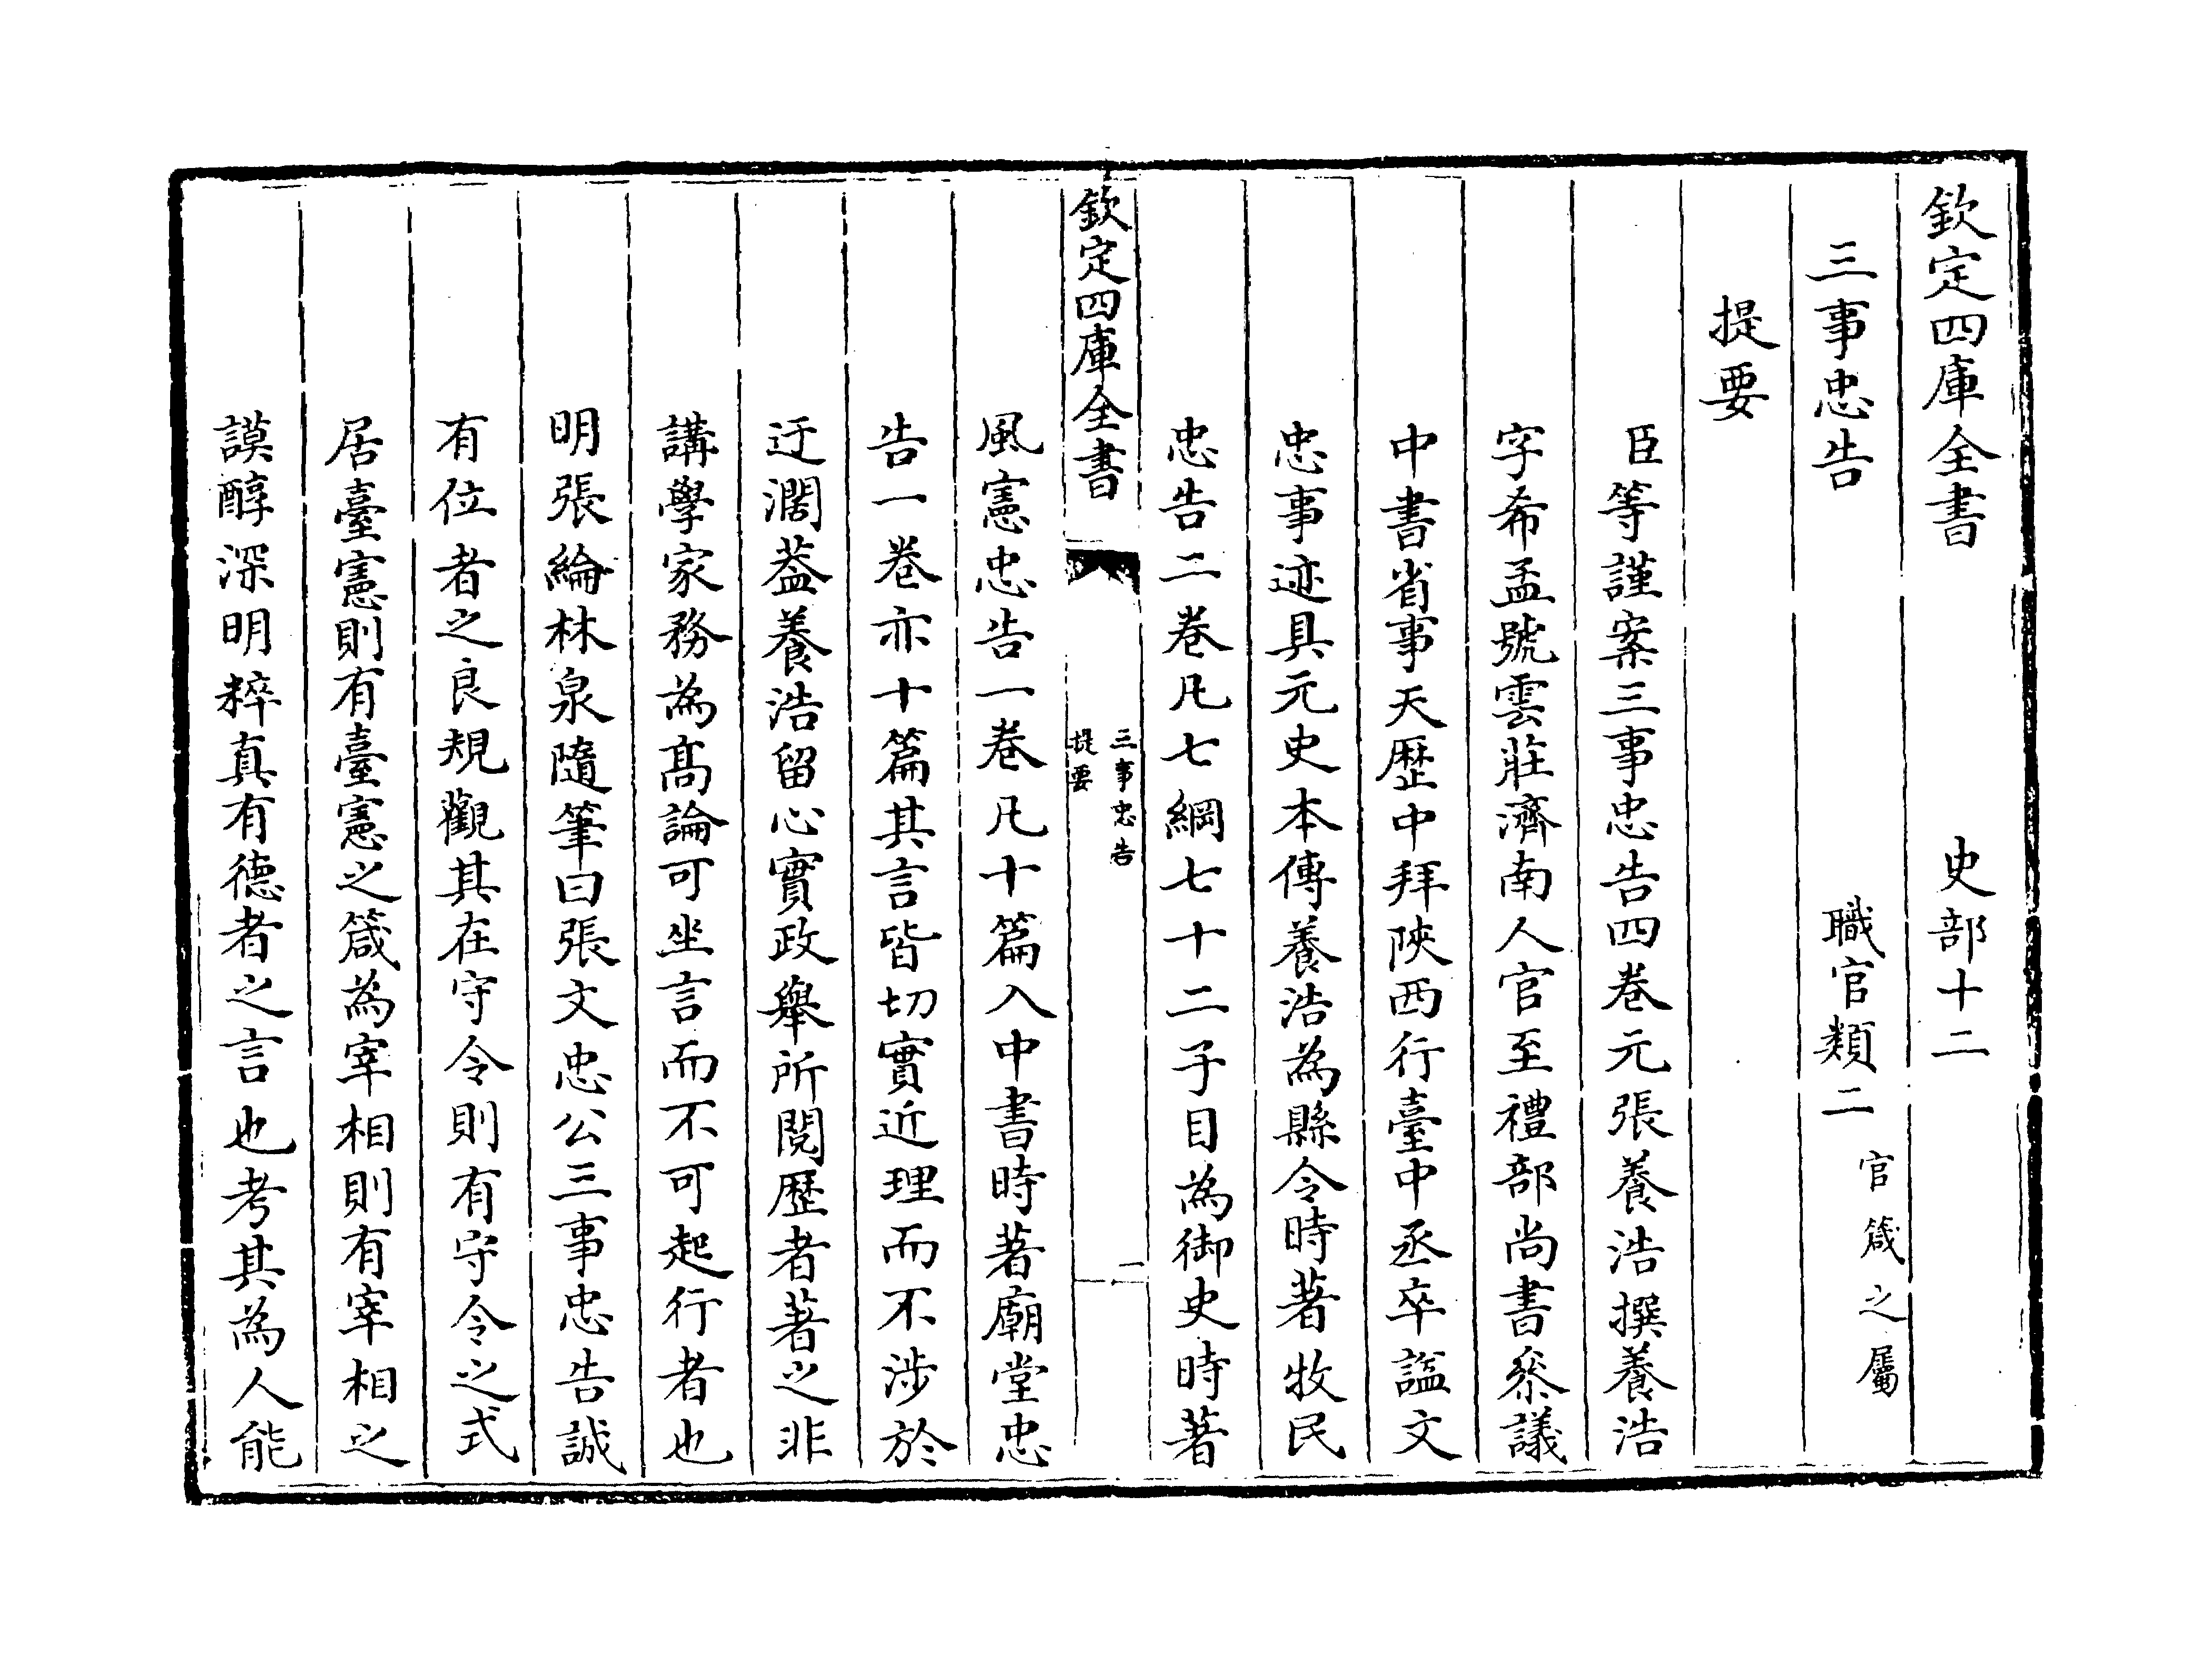 欽定四庫全書 史部十二
三事忠告 職官類二 官箴之屬
提要
臣等謹案三事忠告四卷元張養浩撰養浩
字希孟號雲莊濟南人官至禮部尚書叅議
中書省事天歴中拜陜西行臺中丞卒諡文
忠事迹具元史本傳養浩為縣令時著牧民
忠告二卷凡七綱七十二子目為御史時著
欽定四庫全書
三事忠告
提要
一
風憲忠告一卷凡十篇入中書時著廟堂忠
告一卷亦十篇其言皆切實近理而不涉於
迂濶葢養浩留心實政舉所閱歴者著之非
講學家務為髙論可坐言而不可起行者也
明張綸林泉隨筆曰張文忠公三事忠告誠
有位者之良規觀其在守令則有守令之式
居臺憲則有臺憲之箴為宰相則有宰相之
謨醇深明粹真有德者之言也考其為人能